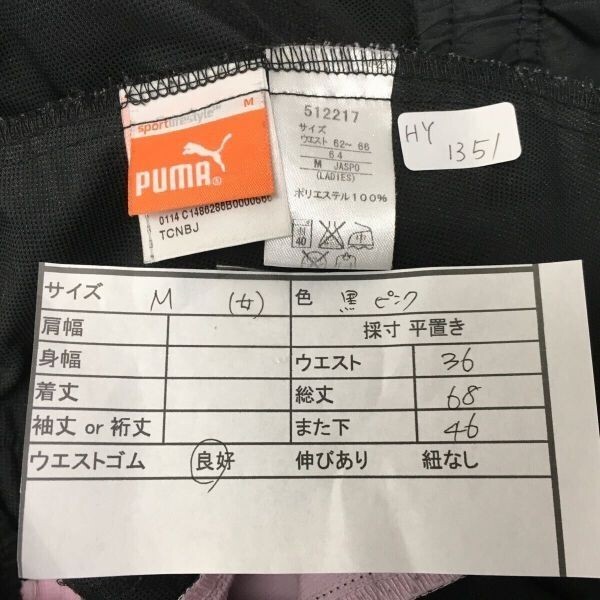 sportlifestyle
M
PUMA
0114 C1486286B0000666
TCNBJ
512217
サイズ
ウエスト 62～ 66
64
M JASPO
(LADIES)
ポリエステル100%
40
HY
1351
サイズ M (女) 色 黒 ピンク
肩幅 採寸 平置き
身幅 ウエスト 36
着丈 総丈 68
袖丈 or 裄丈 また下 46
ウエストゴム 良好 伸びあり 紐なし